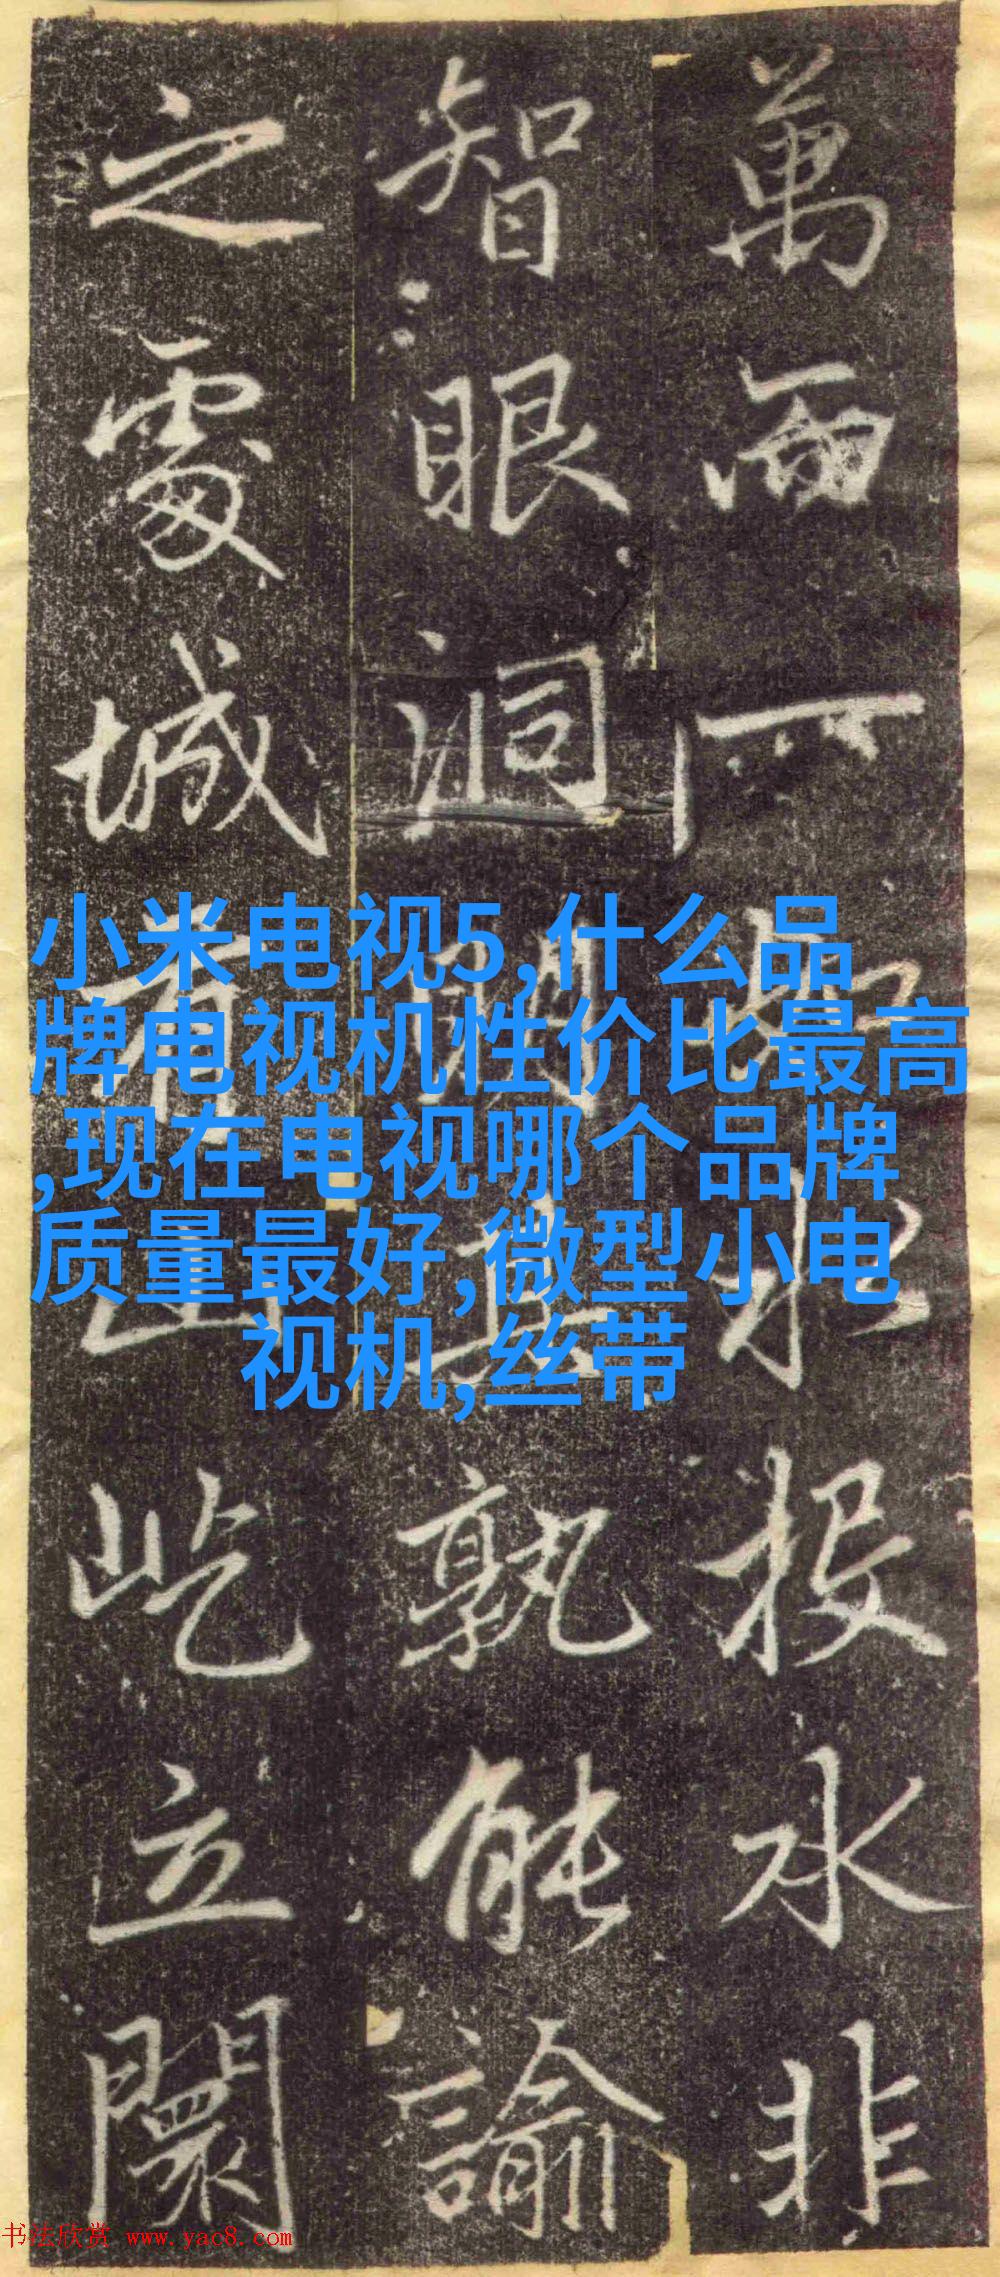 萬而一如水投水非
智眼洞孰能諭
之處城有山屹立闤
小米电视5,什么品
牌电视机性价比最高
,现在电视哪个品牌
质量最好,微型小电
视机,丝带
书法欣赏 www.yac8.com